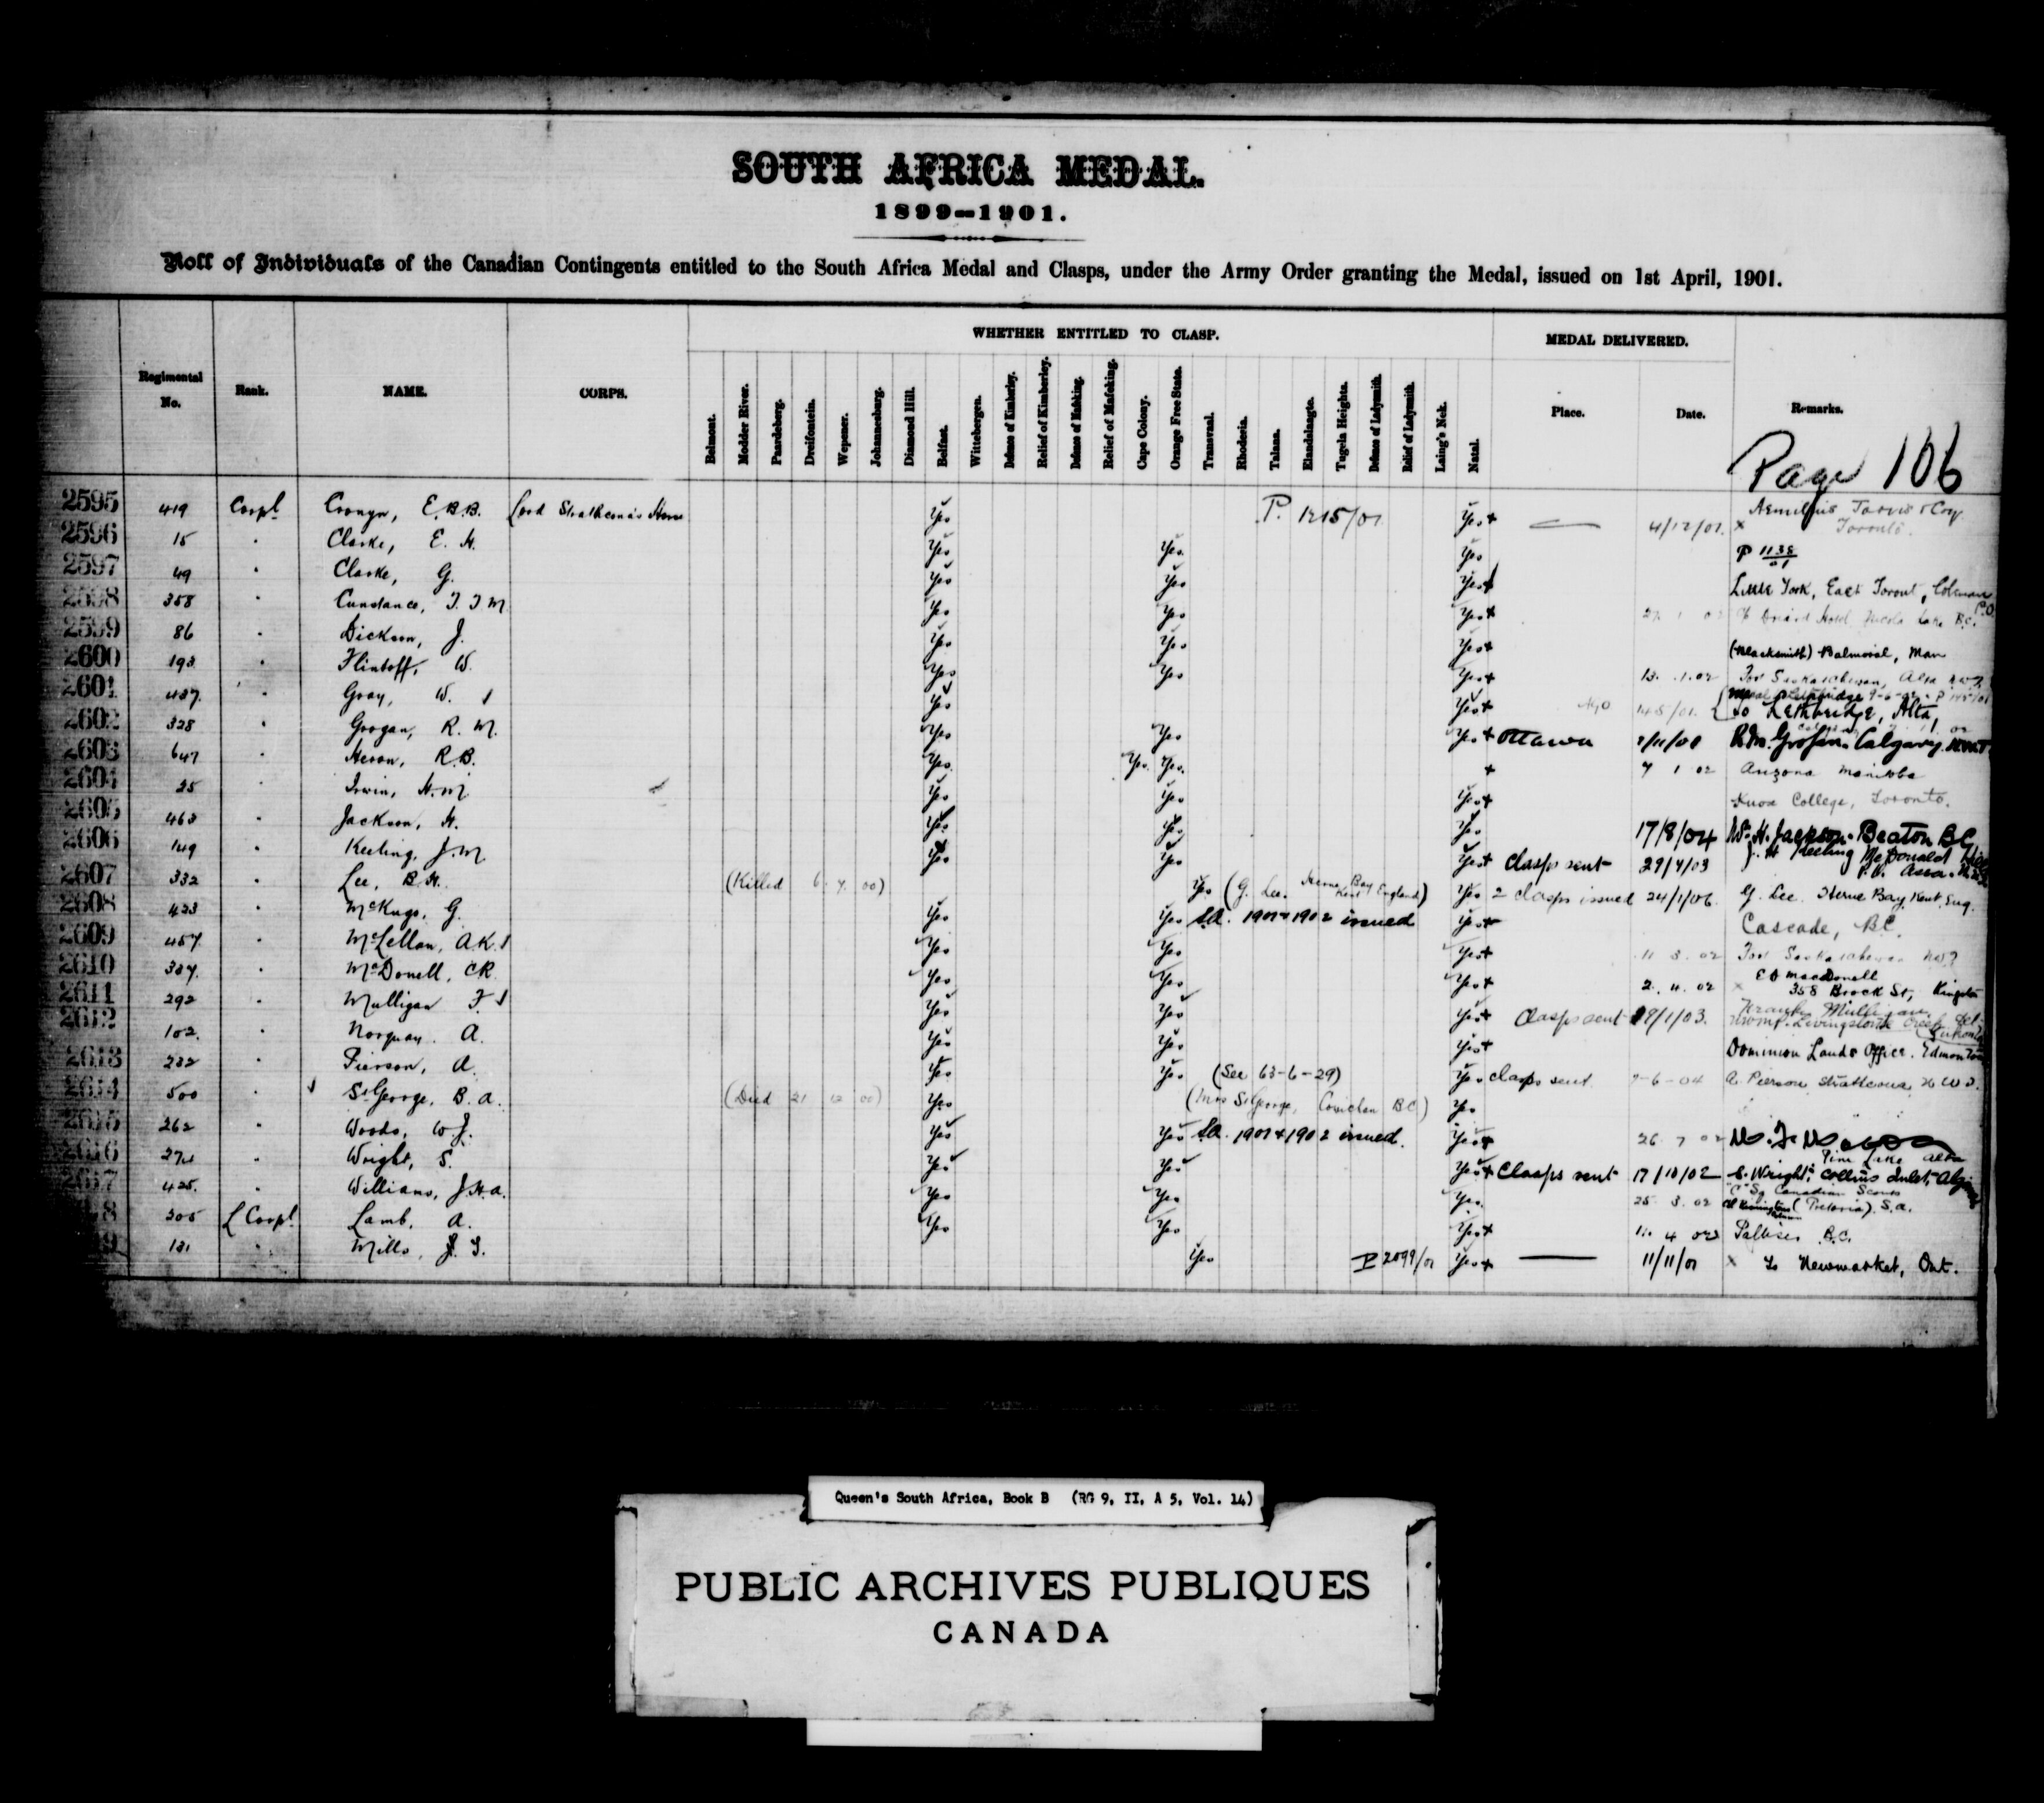 SOUTH AFRICA MEDAL.
1899-1901.
Roll of Individuals of the Canadian Contingents entitled to the South Africa Medal and Clasps, under the Army Order granting the Medal, issued on 1st April, 1901.
WHETHER ENTITLED TO CLASP. MEDAL DELIVERED.
Regimental No. Rank. NAME. CORPS. Belmont. Modder River. Paardeberg. Dreifontein. Wepener. Johannesburg. Diamond Hill. Belfast. Wittebergen. Defense of Kimberley. Relief of Kimberley. Defense of Mafeking. Relief of Mafeking. Cape Colony. Orange Free State. Transvaal. Rhodesia. Talana. Elandslaagte. Tugela Heights. Defense of Ladysmith. Relief of Ladysmith. Laing's Nek. Natal. Place. Date. Remarks.
Page 106
2595 419 Corpl Cronyn, E.B.B. Lord Strathcona's Horse Yes P. 1215/01 Yes+ — 4/12/01. Aemilius Jarvis & Coy. Toronto.
2596 15 " Clarke, E. H. Yes Yes Yes P 1138/01
2597 49 " Clarke, G. Yes Yes Yes+ Little York, East Toront, Coleman P.O.
2598 358 " Cundance, T. J M Yes Yes Yes+ Hotel Lake B.C.
2599 86 " Dickson, J. Yes Yes Yes+ (Blacksmith) Balmoral, Man
2600 193 " Flintoff, W. Yes Yes Yes+ 13. 1. 02 Fort Saskatchewan, Alta
2601 437. " Gray, W. Yes Yes+ 14/5/01. to Lethbridge, Alta,
2602 328 " Grogan, R. M. Yes Yes Yes+ Ottawa /11/01 R.M. Grogan. Calgary
2603 647 " Heron, R.B. Yes Yes Yes + 7 1 02 Arizona Manitoba
2604 25 " Irwin, H.M. Yes Yes Yes+ Knox College, Toronto.
2605 463 " Jackson, H. Yes Yes Yes 17/8/04 H. Jackson. Beaton BC
2606 149 " Keeling, J.M. Yes Yes Yes+ Clasps sent 29/4/03 J. H Keeling McDonald Hills P.O. Assa.
2607 332 " Lee, B.H. (Killed 6. 7. 00) Yes (G. Lee. Herne Bay Kent England) Yes 2 clasps issued 24/1/06. G. Lee. Herne Bay, Kent, Eng.
2608 423 " McKugo, G. Yes Yes S.A. 1901 & 1902 issued Yes+ Cascade, B.C.
2609 457. " McLellan, A.K. Yes Yes Yes+ 11 3. 02 Fort Saskatchewan
2610 337. " McDonell, CR. Yes Yes Yes+ 2. 4. 02 MacDonell 358 Brock St, Kingston
2611 292 " Mulligan F. Yes Yes Yes+ Clasps sent /1/03. Frank Mulligan. Livingstone Creek Yukon
2612 102. " Norquay. A. Yes Yes Yes+ Dominion Lands Office. Edmonton
2613 232 " Pierson, A. Yes Yes (See 63-6-29) Yes clasps sent 7-6-04 A. Pierson Strathcona N W T.
2614 500 " St George, B.A. (Died 21 12 00) Yes (Mrs St George, Cowichan B.C.) Yes
2615 262 " Woods, W.J. Yes Yes S.A. 1901 & 1902 issued. Yes+ 26. 7 02 Pine Lake Alta
2616 274 " Wright, S. Yes Yes Yes+ Clasps sent 17/10/02 S. Wright, Collins Inlet, Algoma
2617 425. " Williams, J.H.A. Yes Yes Yes. 25 3. 02 "C" Sq Canadian Scouts (Pretoria). S.A.
205 L Corpl. Lamb, A. Yes Yes Yes+ 11. 4 02 Palliser B.C.
131 " Mills, J. S. Yes P 2099/01 Yes+ — 11/11/01 x to Newmarket, Ont.
Queen's South Africa, Book B (RG 9, II, A 5, Vol. 14)
PUBLIC ARCHIVES PUBLIQUES
CANADA